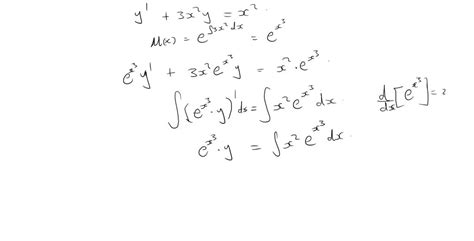 y' + 3x²y = x².
μ(x) = e^{∫3x² dx} = e^{x³}
e^{x³} y' + 3x² e^{x³} y = x² · e^{x³}
∫(e^{x³} · y)' dx = ∫x² e^{x³} dx
d/dx [e^{x³}] =
e^{x³} · y = ∫x² e^{x³} dx.